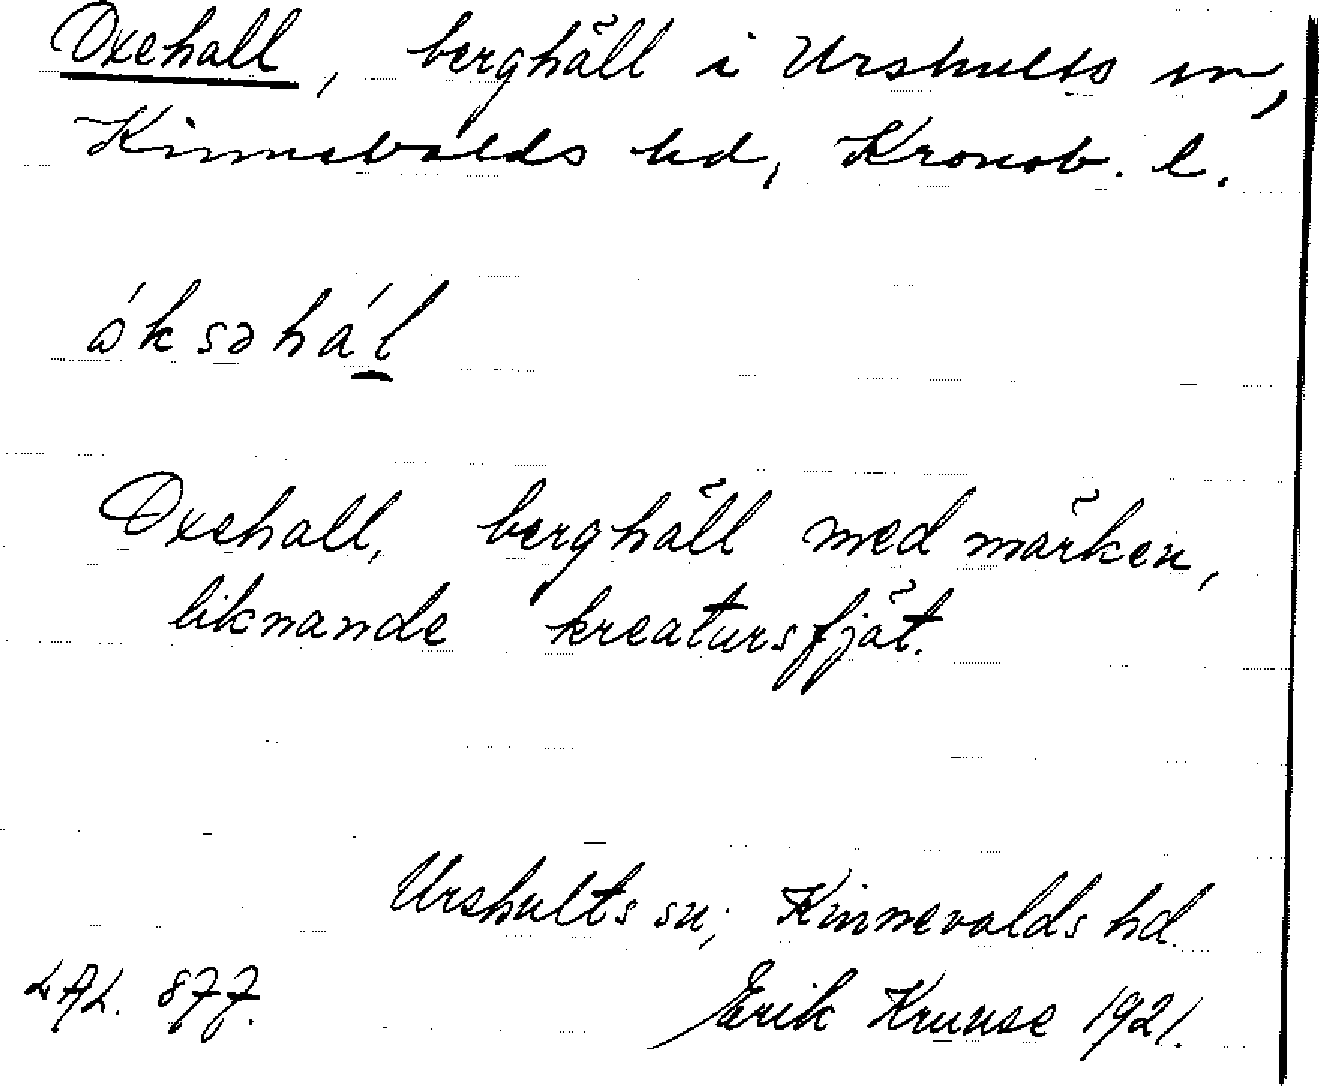 Oxehall, berghäll i Urshults sn,
Kinnevalds hd, Kronob. l.
óksəhál
Oxehall, berghäll med märken,
liknande kreatursfjät.
Urshults sn; Kinnevalds hd.
LAL. 877. Erik Kruuse 1921.